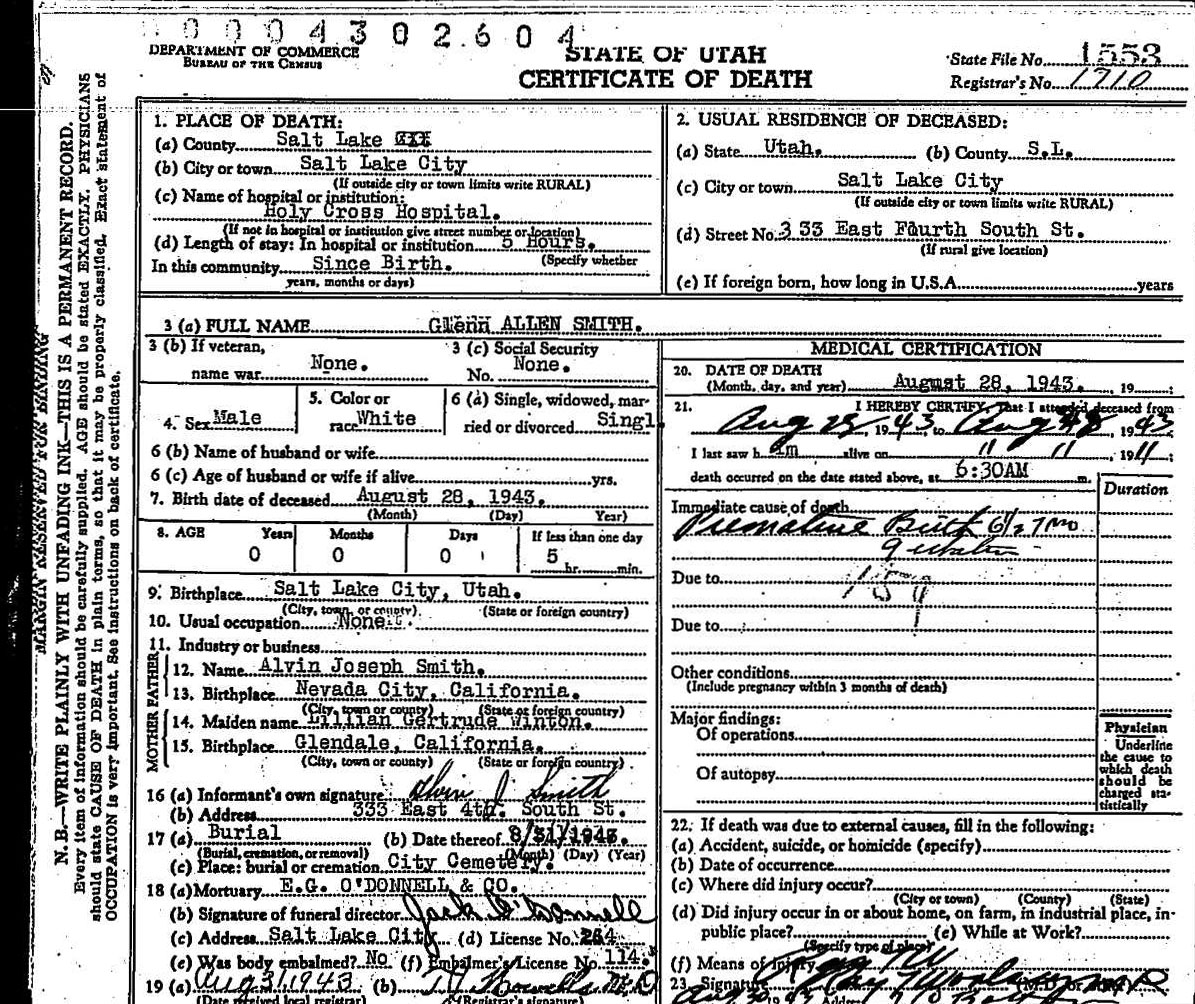 0004302604
DEPARTMENT OF COMMERCE
BUREAU OF THE CENSUS
STATE OF UTAH
CERTIFICATE OF DEATH
State File No. 1553
Registrar's No. 1710
MARGIN RESERVED FOR BINDING
N. B.—WRITE PLAINLY WITH UNFADING INK—THIS IS A PERMANENT RECORD.
Every item of information should be carefully supplied. AGE should be stated EXACTLY. PHYSICIANS
should state CAUSE OF DEATH in plain terms, so that it may be properly classified. Exact statement of
OCCUPATION is very important. See instructions on back of certificate.
1. PLACE OF DEATH:
(a) County Salt Lake
(b) City or town Salt Lake City
(If outside city or town limits write RURAL)
(c) Name of hospital or institution:
Holy Cross Hospital.
(If not in hospital or institution give street number or location)
(d) Length of stay: In hospital or institution 5 Hours.
(Specify whether
In this community Since Birth.
years, months or days)
2. USUAL RESIDENCE OF DECEASED:
(a) State Utah. (b) County S.L.
(c) City or town Salt Lake City
(If outside city or town limits write RURAL)
(d) Street No. 333 East Fourth South St.
(If rural give location)
(e) If foreign born, how long in U.S.A. years
3 (a) FULL NAME Glenn ALLEN SMITH.
3 (b) If veteran,
name war None.
3 (c) Social Security
No. None.
4. Sex Male
5. Color or
race White
6 (a) Single, widowed, mar-
ried or divorced Singl
6 (b) Name of husband or wife
6 (c) Age of husband or wife if alive yrs.
7. Birth date of deceased August 28, 1943.
(Month) (Day) Year)
8. AGE Years Months Days If less than one day
0 0 0 5 hr. min.
9. Birthplace Salt Lake City, Utah.
(City, town, or county) (State or foreign country)
10. Usual occupation None.
11. Industry or business
FATHER
12. Name Alvin Joseph Smith.
13. Birthplace Nevada City, California.
(City, town or county) (State or foreign country)
MOTHER
14. Maiden name Lillian Gertrude Winton.
15. Birthplace Glendale, California.
(City, town or county) (State or foreign country)
16 (a) Informant's own signature Alvin J Smith
(b) Address 333 East 4th. South St.
17 (a) Burial (b) Date thereof 8/31/1943.
(Burial, cremation, or removal) (Month) (Day) (Year)
(c) Place: burial or cremation City Cemetery.
18 (a) Mortuary E.G. O'DONNELL & CO.
(b) Signature of funeral director Jack O'Donnell
(c) Address Salt Lake City (d) License No. 264
(e) Was body embalmed? No (f) Embalmer's License No. 114.
19 (a) Aug 31 1943 (b) M.D
(Date received local registrar) (Registrar's signature)
MEDICAL CERTIFICATION
20. DATE OF DEATH
(Month, day, and year) August 28, 1943. , 19 ;
21. I HEREBY CERTIFY, That I attended deceased from
Aug 28, 1943, to Aug 28, 1943
I last saw him alive on " ", 19 " ;
death occurred on the date stated above, at 6:30AM m.
Duration
Immediate cause of death
Premature Birth 6 1/2 7 mo
gestation
Due to 159
Due to
Other conditions
(Include pregnancy within 3 months of death)
Major findings:
Of operations
Of autopsy
Physician
Underline
the cause to
which death
should be
charged sta-
tistically
22. If death was due to external causes, fill in the following:
(a) Accident, suicide, or homicide (specify)
(b) Date of occurrence
(c) Where did injury occur?
(City or town) (County) (State)
(d) Did injury occur in or about home, on farm, in industrial place, in-
public place? (e) While at Work?
(Specify type of place)
(f) Means of injury
23. Signature
Address